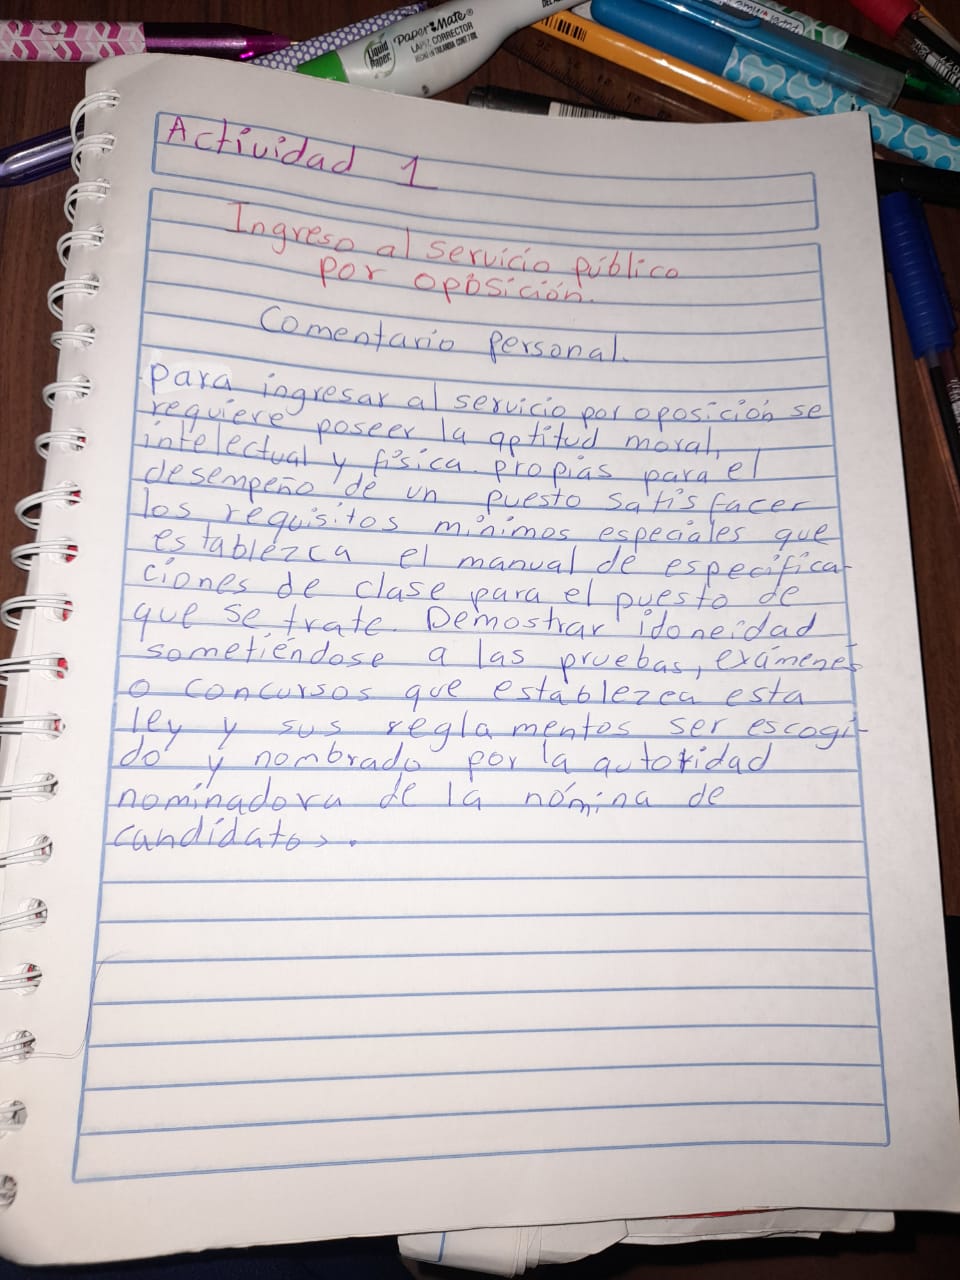 Paper Mate
LÁPIZ CORRECTOR
Liquid Paper
Actividad 1
Ingreso al servicio público
por oposición.
Comentario personal.
para ingresar al servicio por oposición se
requiere poseer la aptitud moral,
intelectual y física propias para el
desempeño de un puesto satisfacer
los requisitos mínimos especiales que
establezca el manual de especifica-
ciones de clase para el puesto de
que se trate. Demostrar idoneidad
sometiéndose a las pruebas, exámenes
o concursos que establezca esta
ley y sus reglamentos ser escogi-
do y nombrado por la autoridad
nominadora de la nómina de
candidatos.